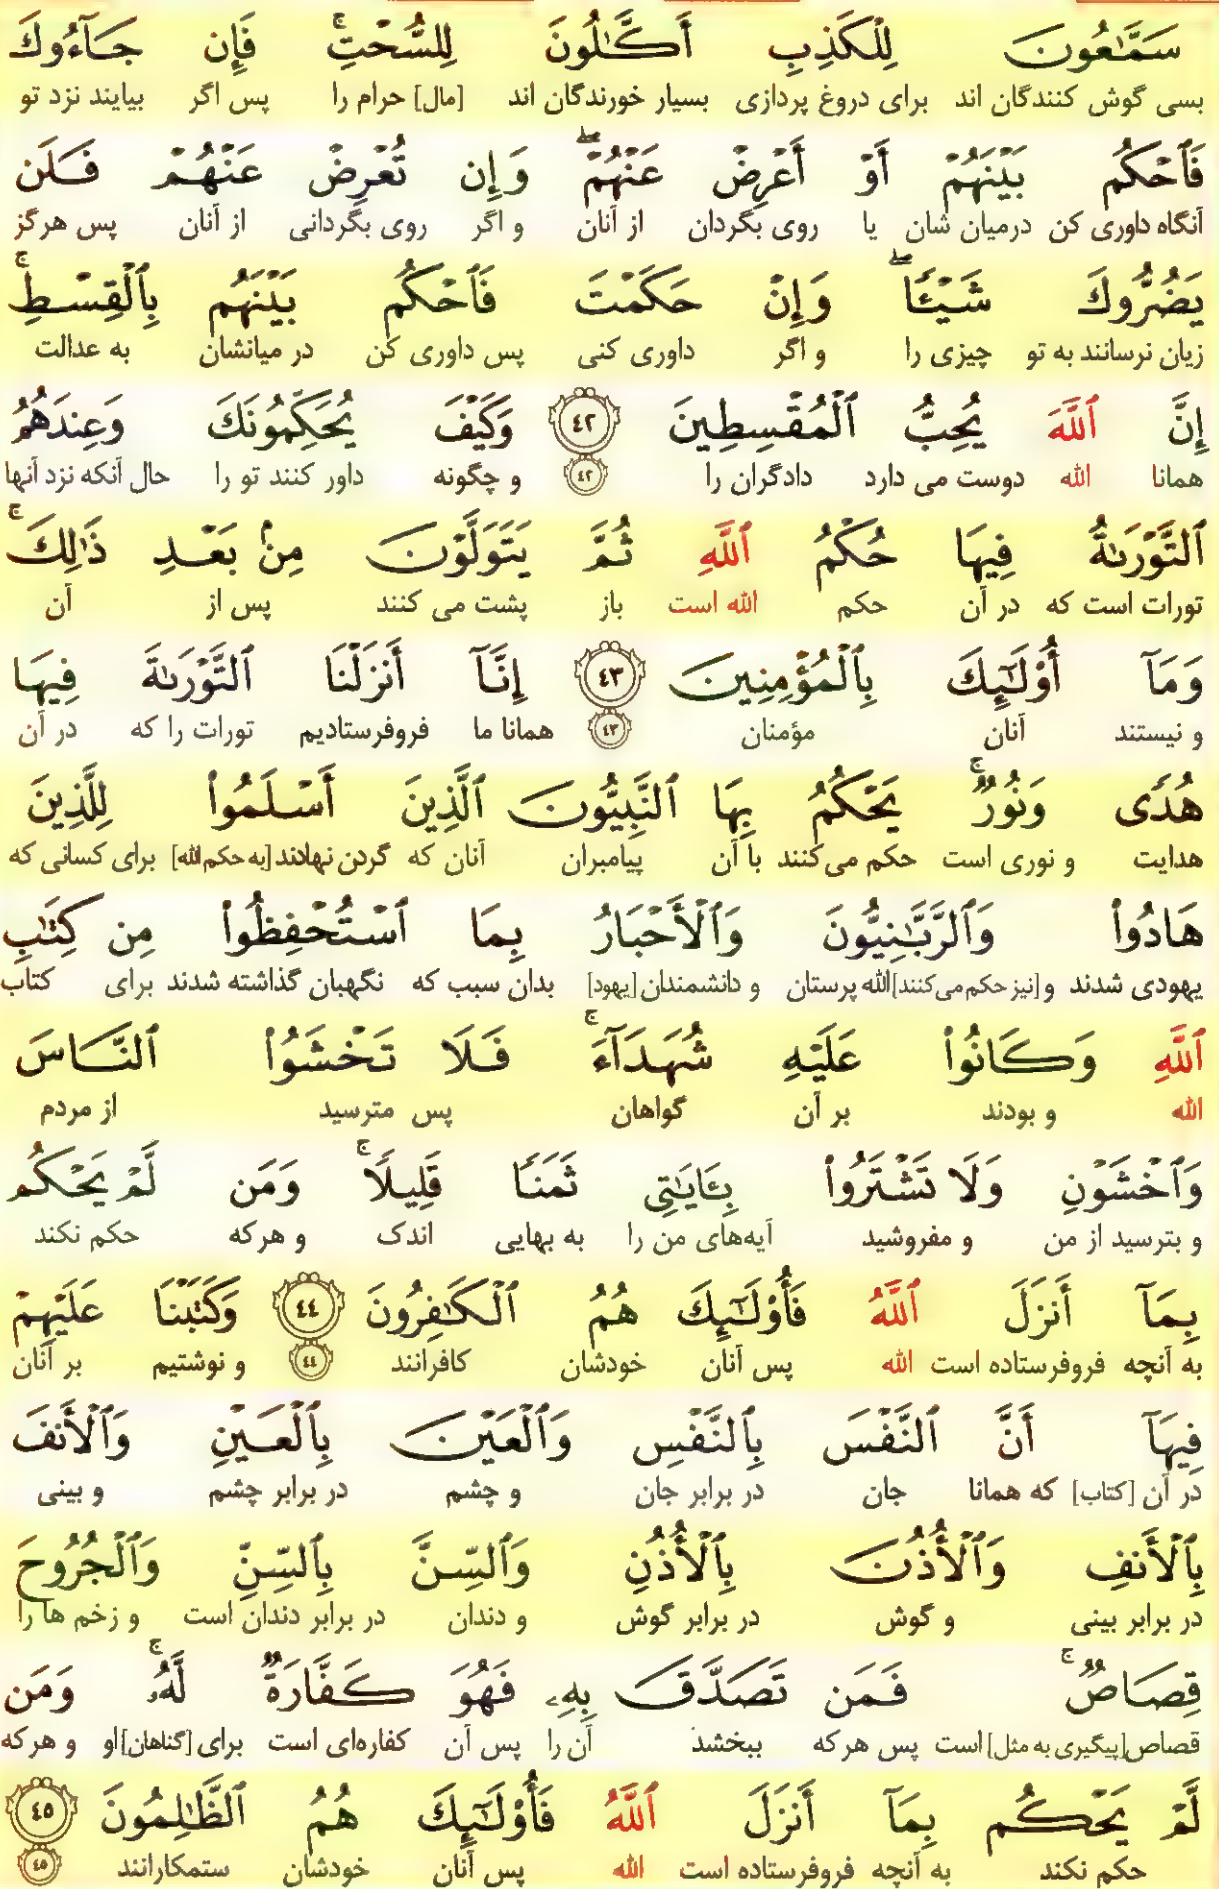 سَمَّٰعُونَ لِلْكَذِبِ أَكَّٰلُونَ لِلسُّحْتِ ۚ فَإِن جَآءُوكَ
بسی گوش کنندگان اند برای دروغ پردازی بسیار خورندگان اند [مال] حرام را پس اگر بیایند نزد تو
فَٱحْكُم بَيْنَهُمْ أَوْ أَعْرِضْ عَنْهُمْ ۖ وَإِن تُعْرِضْ عَنْهُمْ فَلَن
آنگاه داوری کن درمیان شان یا روی بگردان از آنان و اگر روی بگردانی از آنان پس هرگز
يَضُرُّوكَ شَيْـًٔا ۖ وَإِنْ حَكَمْتَ فَٱحْكُم بَيْنَهُم بِٱلْقِسْطِ ۚ
زیان نرسانند به تو چیزی را و اگر داوری کنی پس داوری کن در میانشان به عدالت
إِنَّ ٱللَّهَ يُحِبُّ ٱلْمُقْسِطِينَ ٤٢ وَكَيْفَ يُحَكِّمُونَكَ وَعِندَهُمُ
همانا الله دوست می دارد دادگران را ٤٢ و چگونه داور کنند تو را حال آنکه نزد آنها
ٱلتَّوْرَىٰةُ فِيهَا حُكْمُ ٱللَّهِ ثُمَّ يَتَوَلَّوْنَ مِنۢ بَعْدِ ذَٰلِكَ ۚ
تورات است که در آن حکم الله است باز پشت می کنند پس از آن
وَمَآ أُو۟لَـٰٓئِكَ بِٱلْمُؤْمِنِينَ ٤٣ إِنَّآ أَنزَلْنَا ٱلتَّوْرَىٰةَ فِيهَا
و نیستند آنان مؤمنان ٤٣ همانا ما فروفرستادیم تورات را که در آن
هُدًى وَنُورٌ ۚ يَحْكُمُ بِهَا ٱلنَّبِيُّونَ ٱلَّذِينَ أَسْلَمُوا۟ لِلَّذِينَ
هدایت و نوری است حکم می‌کنند با آن پیامبران آنان که گردن نهادند [به حکم الله] برای کسانی که
هَادُوا۟ وَٱلرَّبَّـٰنِيُّونَ وَٱلْأَحْبَارُ بِمَا ٱسْتُحْفِظُوا۟ مِن كِتَـٰبِ
یهودی شدند و [نیز حکم می‌کنند] الله پرستان و دانشمندان [یهود] بدان سبب که نگهبان گذاشته شدند برای کتاب
ٱللَّهِ وَكَانُوا۟ عَلَيْهِ شُهَدَآءَ ۚ فَلَا تَخْشَوُا۟ ٱلنَّاسَ
الله و بودند بر آن گواهان پس مترسید از مردم
وَٱخْشَوْنِ وَلَا تَشْتَرُوا۟ بِـَٔايَـٰتِى ثَمَنًا قَلِيلًا ۚ وَمَن لَّمْ يَحْكُم
و بترسید از من و مفروشید آیه‌های من را به بهایی اندک و هرکه حکم نکند
بِمَآ أَنزَلَ ٱللَّهُ فَأُو۟لَـٰٓئِكَ هُمُ ٱلْكَـٰفِرُونَ ٤٤ وَكَتَبْنَا عَلَيْهِمْ
به آنچه فروفرستاده است الله پس آنان خودشان کافرانند ٤٤ و نوشتیم بر آنان
فِيهَآ أَنَّ ٱلنَّفْسَ بِٱلنَّفْسِ وَٱلْعَيْنَ بِٱلْعَيْنِ وَٱلْأَنفَ
در آن [کتاب] که همانا جان در برابر جان و چشم در برابر چشم و بینی
بِٱلْأَنفِ وَٱلْأُذُنَ بِٱلْأُذُنِ وَٱلسِّنَّ بِٱلسِّنِّ وَٱلْجُرُوحَ
در برابر بینی و گوش در برابر گوش و دندان در برابر دندان است و زخم ها را
قِصَاصٌ ۚ فَمَن تَصَدَّقَ بِهِۦ فَهُوَ كَفَّارَةٌ لَّهُۥ ۚ وَمَن
قصاص [پیگیری به مثل] است پس هرکه ببخشد آن را پس آن کفاره‌ای است برای [گناهان] او و هرکه
لَّمْ يَحْكُم بِمَآ أَنزَلَ ٱللَّهُ فَأُو۟لَـٰٓئِكَ هُمُ ٱلظَّـٰلِمُونَ ٤٥
حکم نکند به آنچه فروفرستاده است الله پس آنان خودشان ستمکارانند ٤٥